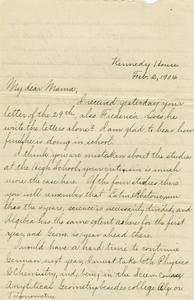 Kennedy House
Feb. 2, 1906
My dear Mama,
I received yesterday your
letter of the 29th, also Frederica. Does he
write the letters alone? I am glad to hear how
fine he is doing in school.
I think you are mistaken about the studies
at the High School, your criterion is much
more the case here. Of the four studies there
you will remember that Latin
than the 3 years, science is necessarily divided, and
Algebra has the same extent as here for the first
year, and Geom. is a year ahead there.
I would have a hard time to continue
German, next year, I must take both Physics
& Chemistry, and, being in the
Analytical Geometry besides college Alg. or
Trigonometry.